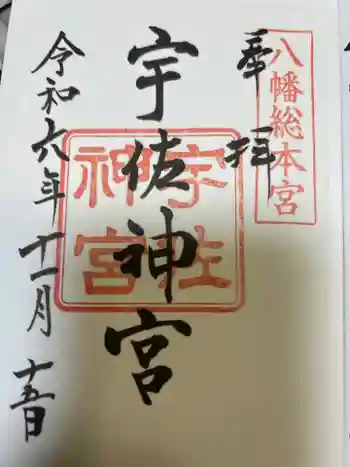 八幡総本宮
奉拝
宇佐神宮
宇佐
神宮
令和六年十一月十五日